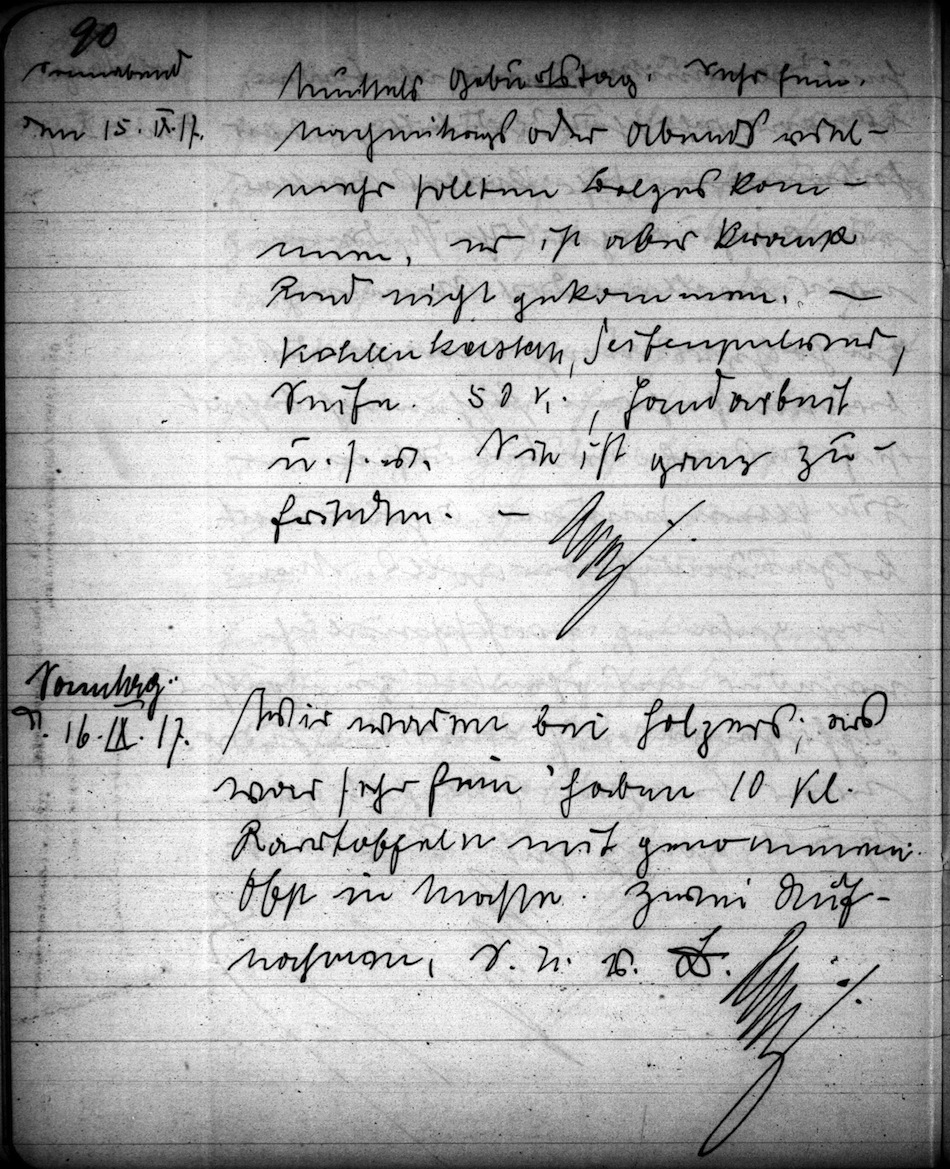 90
Sonnabend
den 15. IX. 17.
Muttels Geburtstag. Sehr fein.
Nachmittags oder Abends viel-
mehr sollten Bolzes kom-
men, er ist aber krank
und nicht gekommen. —
Kohlenkasten, Seifenpulver,
Seife. 50 , Handarbeit
u. s. w. Sie ist ganz zu-
frieden. —
Sonntag.
d. 16. IX. 17.
Wir waren bei Holzers, es
war sehr fein haben 10 Kl.
Kartoffeln mit genommen.
Obst in Masse. Zwei Auf-
nahmen, S. u. w.